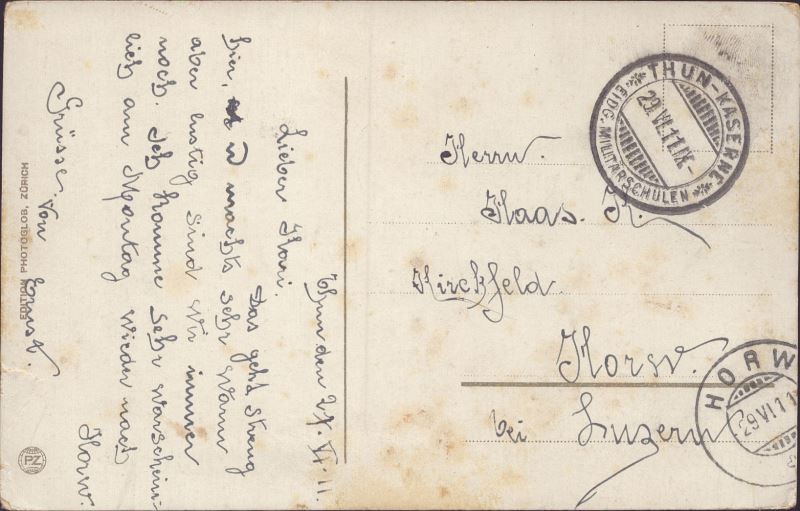 Thun den 27. VI. 11.
Lieber Kari.
Das geht streng
hier, u machts sehr warm
aber lustig sind wir immer
noch. Ich komme sehr warschein-
lich am Montag wieder nach
Horw.
Grüsse. von Ernst.
EDITION PHOTOGLOB, ZÜRICH
PZ
THUN-KASERNE
29.VI.11.IX-
EIDG. MILITÄRSCHULEN
Herrn.
Haas. K.
Kirchfeld.
Horw.
bei Luzern
HORW
29 VI 11